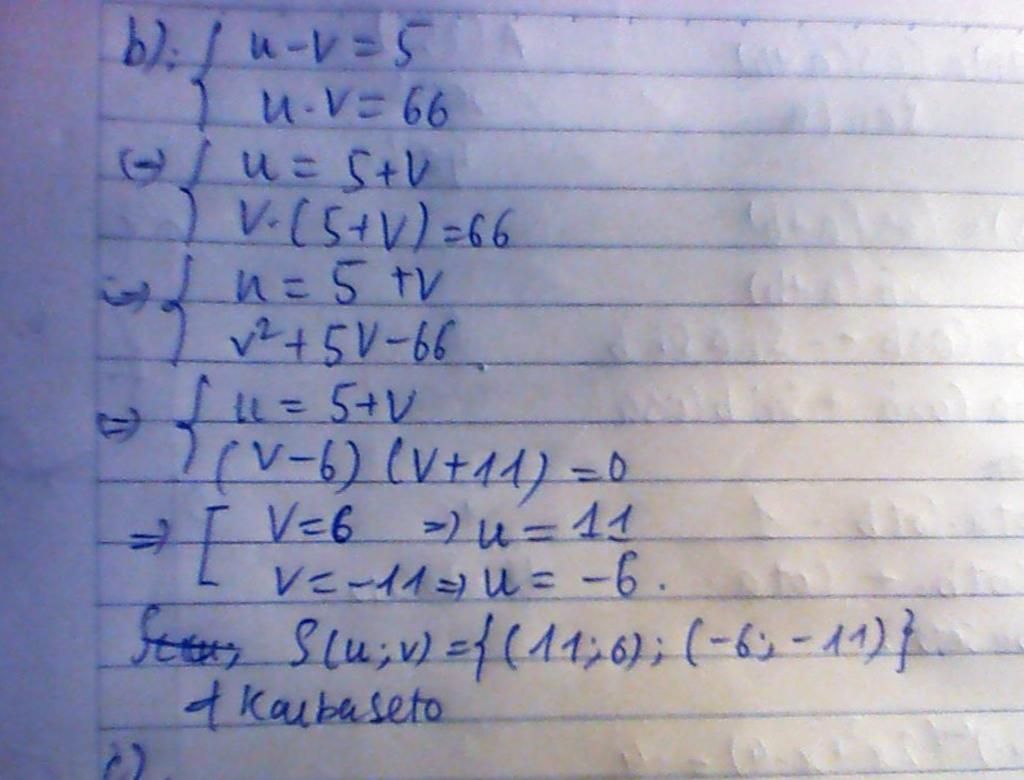 b): { u - v = 5
u . v = 66
(=) { u = 5 + v
v . (5 + v) = 66
(=) { u = 5 + v
v² + 5v - 66
=) { u = 5 + v
(v - 6) (v + 11) = 0
=) [ v = 6 =) u = 11
v = -11 =) u = -6.
S(u; v) = {(11; 6); (-6; -11)}.
c)